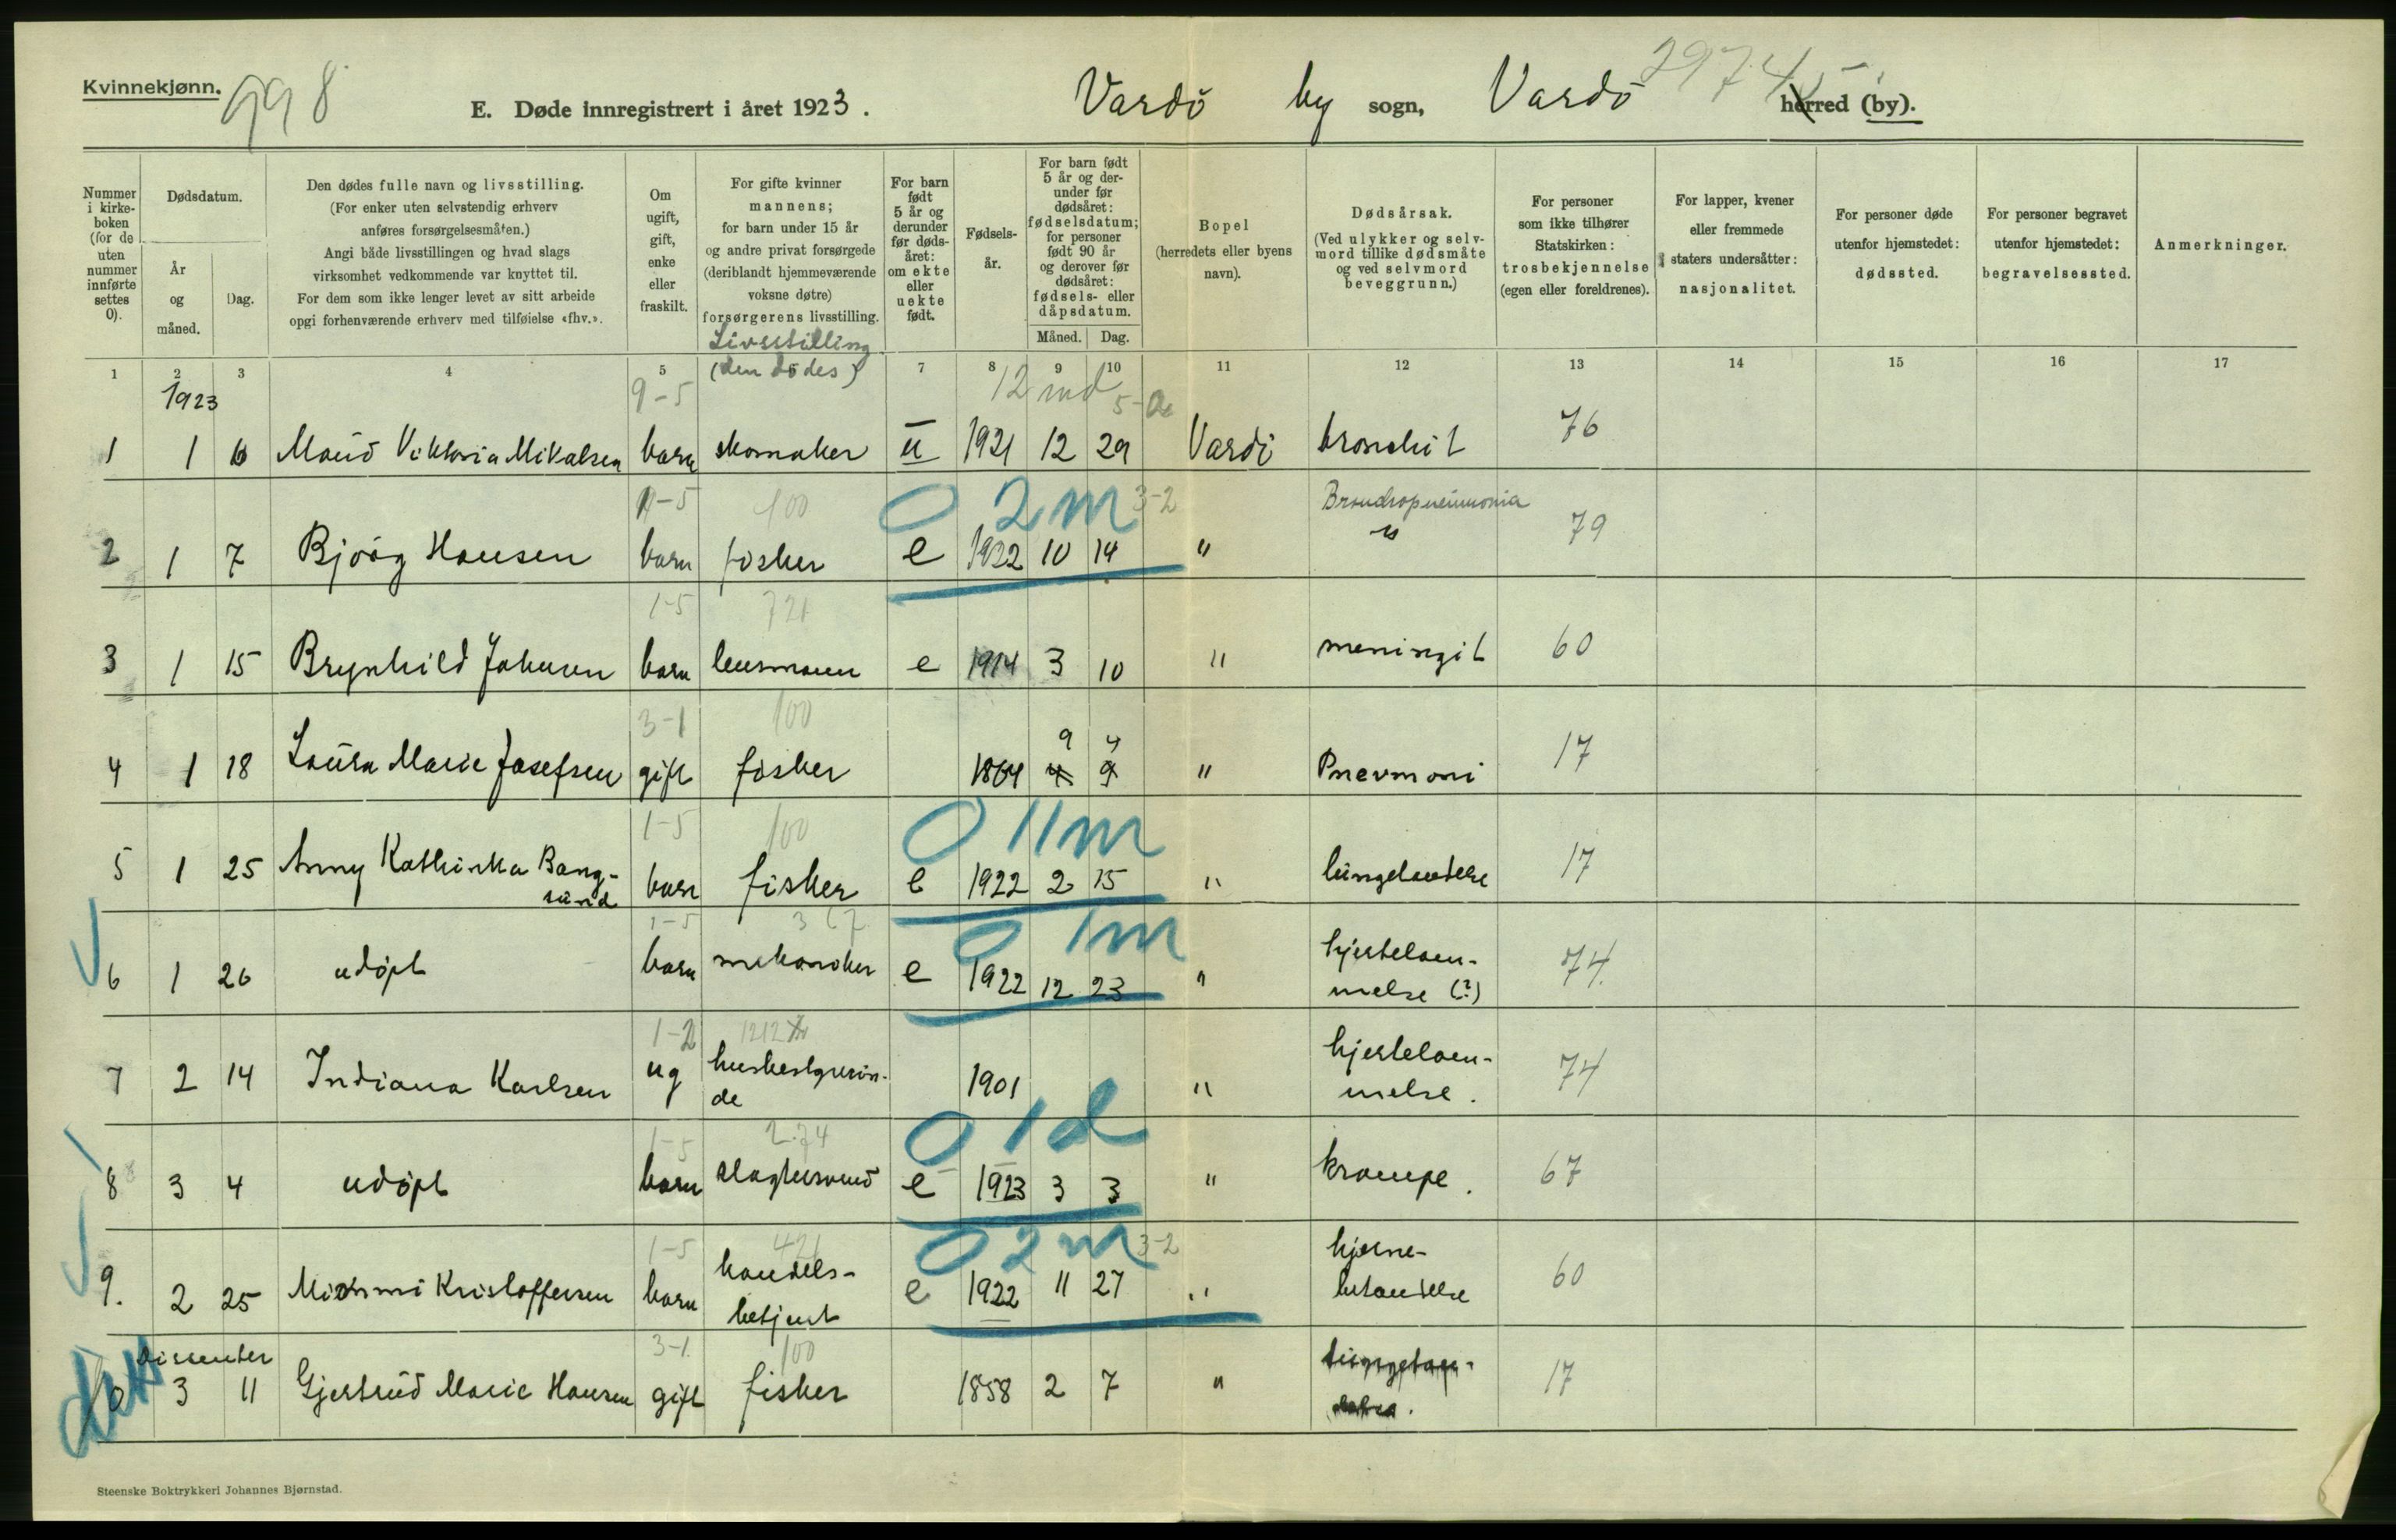 Kvinnekjønn.
998
E. Døde innregistrert i året 1923.
Vardö by sogn, Vardö herred (by).
29745
Nummer i kirkeboken (for de uten nummer innførte settes 0).
Dødsdatum.
År og måned.
Dag.
Den dødes fulle navn og livsstilling.
(For enker uten selvstendig erhverv anføres forsørgelsesmåten.)
Angi både livsstillingen og hvad slags virksomhet vedkommende var knyttet til.
For dem som ikke lenger levet av sitt arbeide opgi forhenværende erhverv med tilføielse «fhv.».
Om ugift, gift, enke eller fraskilt.
For gifte kvinner mannens; for barn under 15 år og andre privat forsørgede (deriblandt hjemmeværende voksne døtre) forsørgerens livsstilling.
Livsstilling (den dödes)
For barn født 5 år og derunder før dødsåret: om ekte eller uekte født.
Fødselsår.
For barn født 5 år og derunder før dødsåret: fødselsdatum; for personer født 90 år og derover før dødsåret: fødsels- eller dåpsdatum.
Måned. Dag.
Bopel (herredets eller byens navn).
Dødsårsak. (Ved ulykker og selvmord tillike dødsmåte og ved selvmord beveggrunn.)
For personer som ikke tilhører Statskirken: trosbekjennelse (egen eller foreldrenes).
For lapper, kvener eller fremmede staters undersåtter: nasjonalitet.
For personer døde utenfor hjemstedet: dødssted.
For personer begravet utenfor hjemstedet: begravelsessted.
Anmerkninger.
1 2 3 4 5 7 8 9 10 11 12 13 14 15 16 17
1923
9-5 12 md
1 1 6 Maud Viktoria Mikalsen barn skomaker u 1921 12 29 Vardö bronchit 76
1-5 100 0 2m 3-2
2 1 7 Bjørg Hansen barn fisker e 1922 10 14 " Bronchopneumonia 79
1-5 721
3 1 15 Brynhild Johnsen barn lensmann e 1914 3 10 " meningit 60
3-1 100 9 4
4 1 18 Laura Marie Josefsen gift fisker 1864 4 9 " Pnevmoni 17
1-5 100 0 11m
5 1 25 Anny Kathinka Bangsund barn fisker e 1922 2 15 " lungebetendelse 17
1-5 367 0 1m
6 1 26 udöpt barn mekaniker e 1922 12 23 " hjertelammelse (?) 74
1-2 1212
7 2 14 Indiana Karlsen ug husbestyrerinde 1901 " hjertelammelse. 74
1-5 274 0 1d
8 3 4 udöpt barn slagtersvend e 1923 3 3 " krampe. 67
1-5 421 0 2m 3-2
9. 2 25 Mimmi Kristoffersen barn handelsbetjent e 1922 11 27 " hjernebetændelse 60
Dissenter
3-1 100
10 3 11 Gjertrud Marie Hansen gift fisker 1858 2 7 " 17
Steenske Boktrykkeri Johannes Bjørnstad.